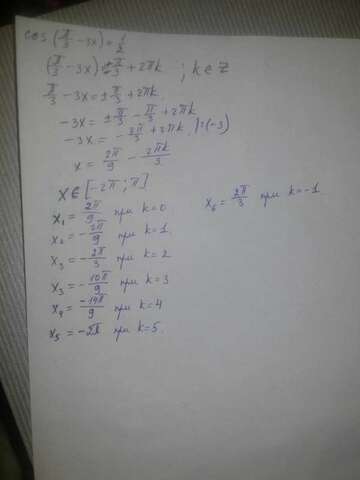 cos(π/3 - 3x) = 1/2
(π/3 - 3x) = ±π/3 + 2πk ; k∈Z
π/3 - 3x = ±π/3 + 2πk
-3x = ±π/3 - π/3 + 2πk
-3x = -2π/3 + 2πk. | :(-3)
x = 2π/9 - 2πk/3
x∈[-2π; π]
x₁ = 2π/9 при k=0
x₂ = -4π/9 при k=1.
x₃ = -2π/3 при k=2
x₃ = -10π/9 при k=3
x₄ = -14π/9 при k=4
x₅ = -2π при k=5.
x₆ = 2π/3 при k=-1.